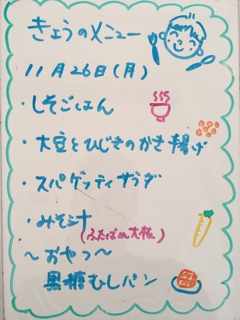 きょうのメニュー
11月26日(月)
・しそごはん
・大豆とひじきのかき揚げ
・スパゲッティサラダ
・みそ汁
～おやつ～
黒糖むしパン